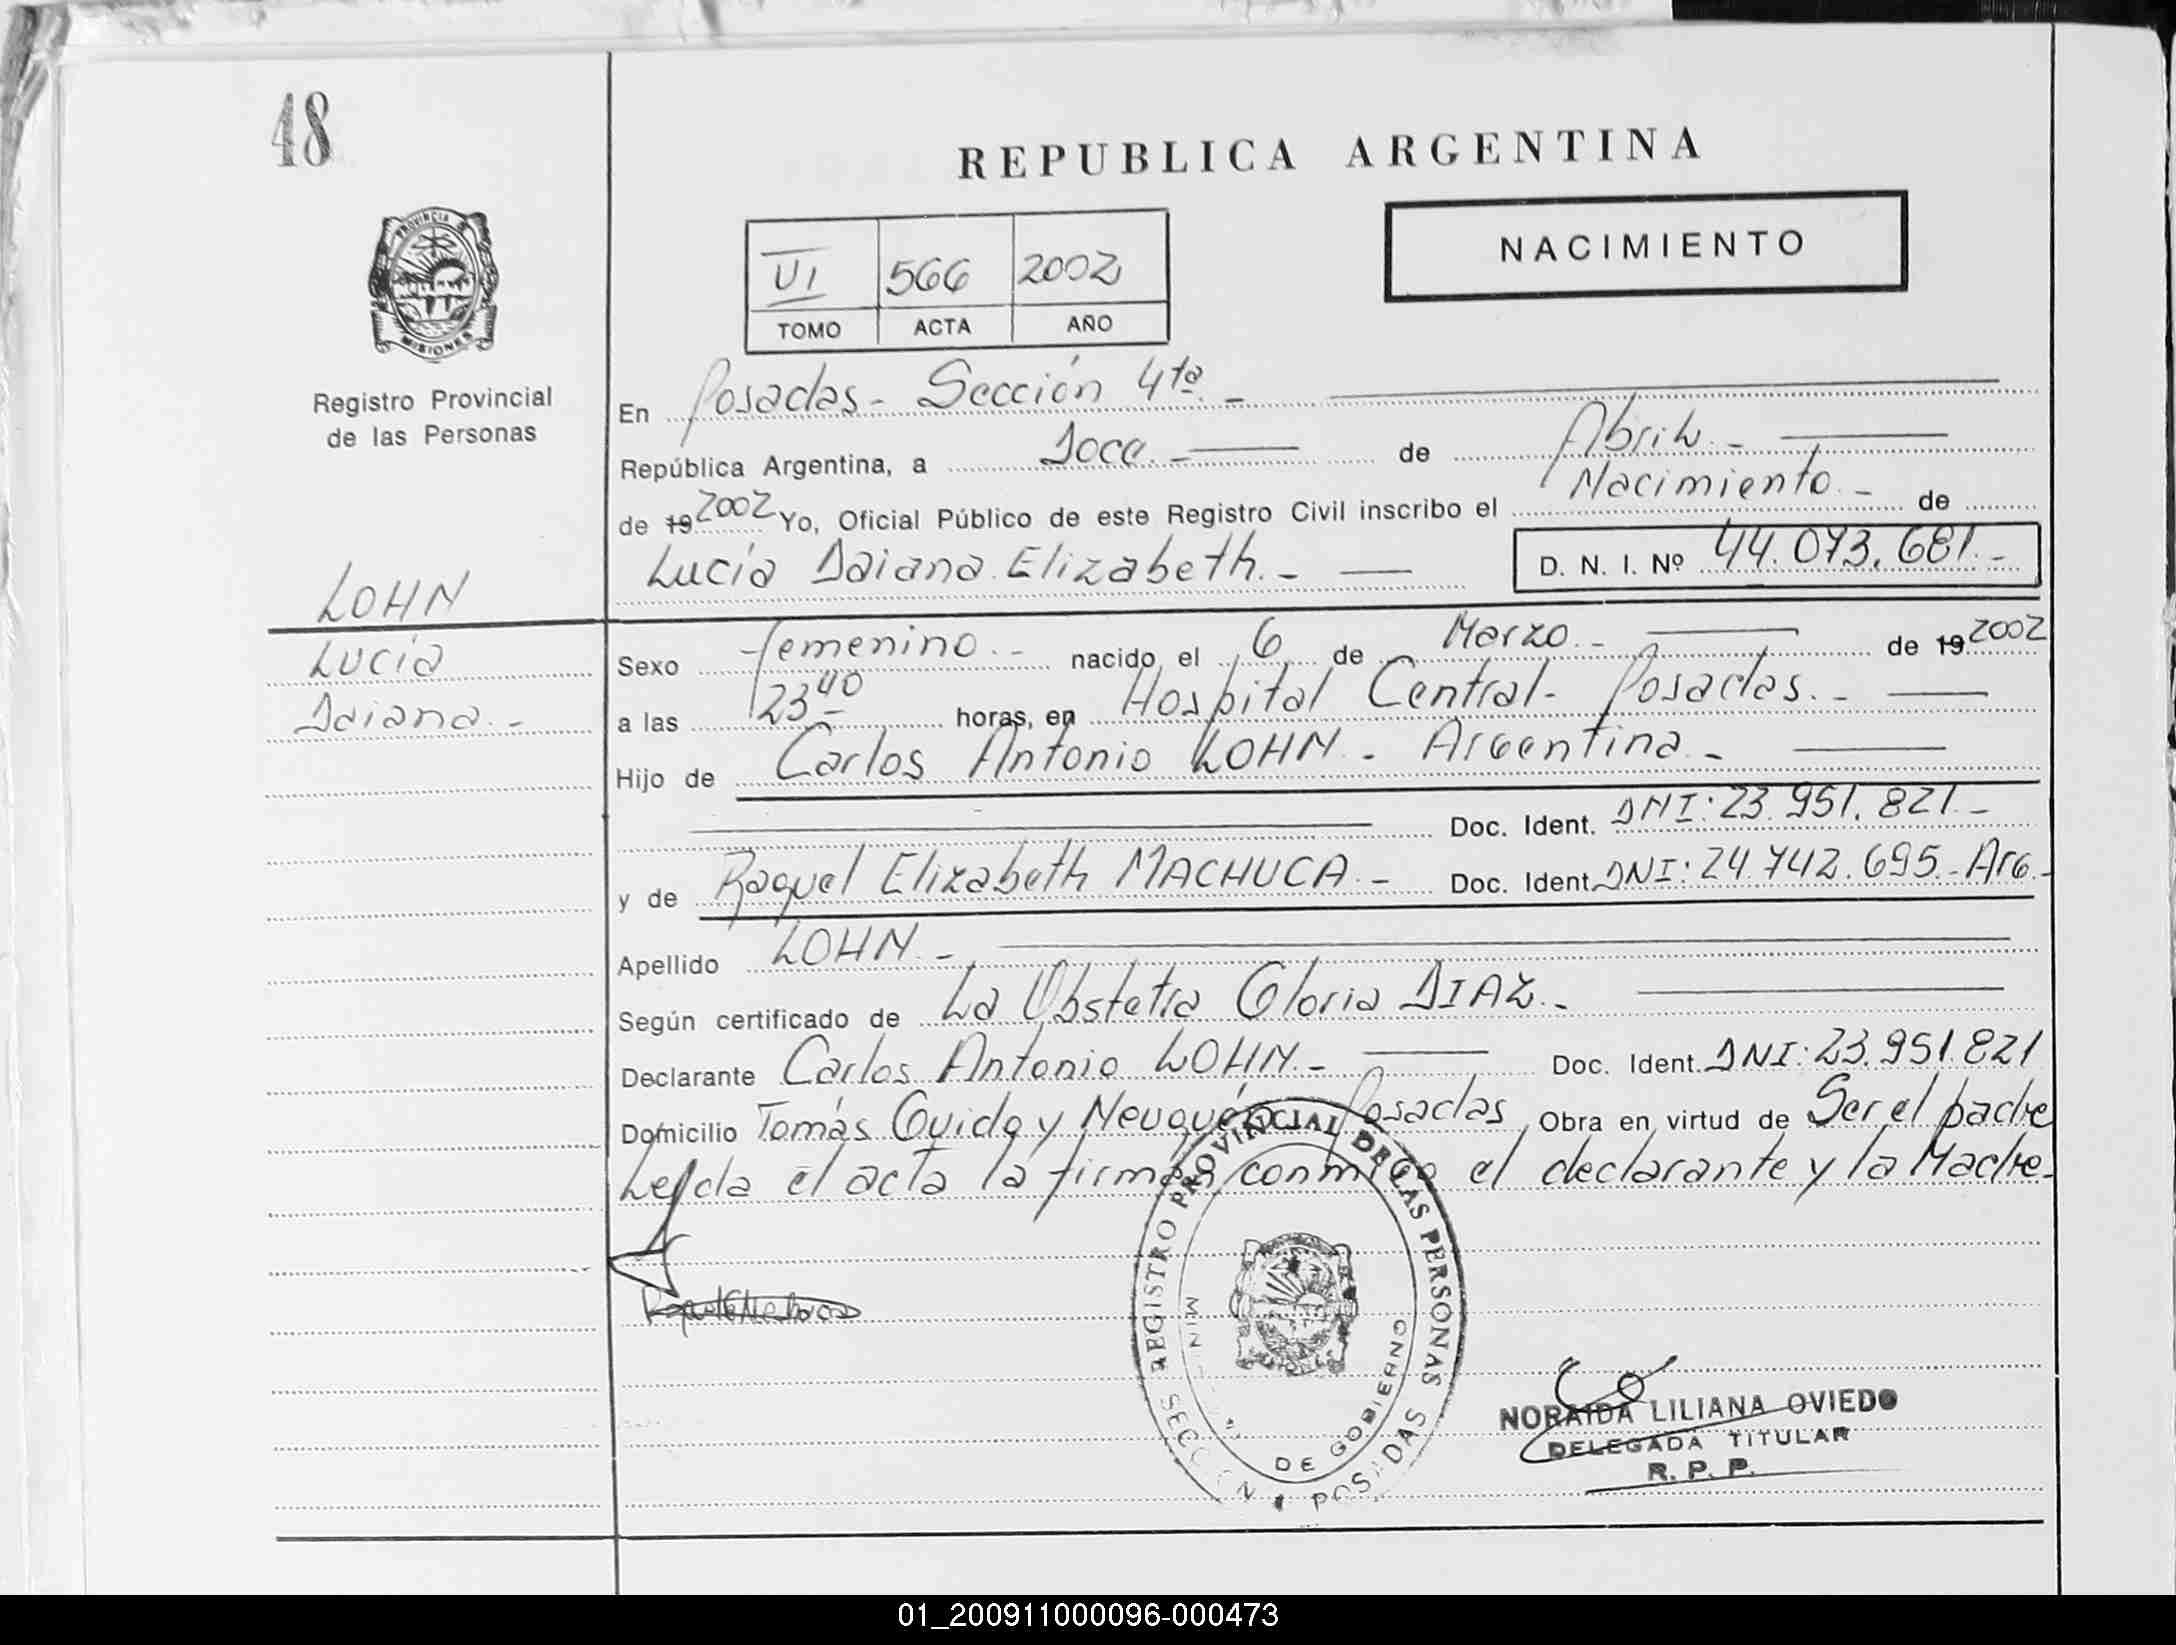 48
REPUBLICA ARGENTINA
PROVINCIA
MISIONES
Registro Provincial
de las Personas
NACIMIENTO
VI 566 2002
TOMO ACTA AÑO
En Posadas - Sección 4ta. -
República Argentina, a Doce. - de Abril. -
de 19 2002 Yo, Oficial Público de este Registro Civil inscribo el Nacimiento. - de
Lucía Daiana Elizabeth. - D. N. I. Nº 44.073.681. -
LOHN
Lucía
Daiana. -
Sexo femenino. - nacido el 6 de Marzo. - de 19 2002
a las 23 40 horas, en Hospital Central - Posadas. -
Hijo de Carlos Antonio LOHN. - Argentina. -
Doc. Ident. DNI: 23.951.821. -
y de Raquel Elizabeth MACHUCA. - Doc. Ident. DNI: 24.742.695. - Arg. -
Apellido LOHN. -
Según certificado de La Obstetra Gloria DIAZ. -
Declarante Carlos Antonio LOHN. - Doc. Ident. DNI: 23.951.821
Domicilio Tomás Guido y Neuquén Posadas Obra en virtud de Ser el padre
Leída el acta la firman conmigo el declarante y la Madre. -
REGISTRO PROVINCIAL DE LAS PERSONAS
DE GOBIERNO
POSADAS
NORAIDA LILIANA OVIEDO
DELEGADA TITULAR
R. P. P.
01_200911000096-000473